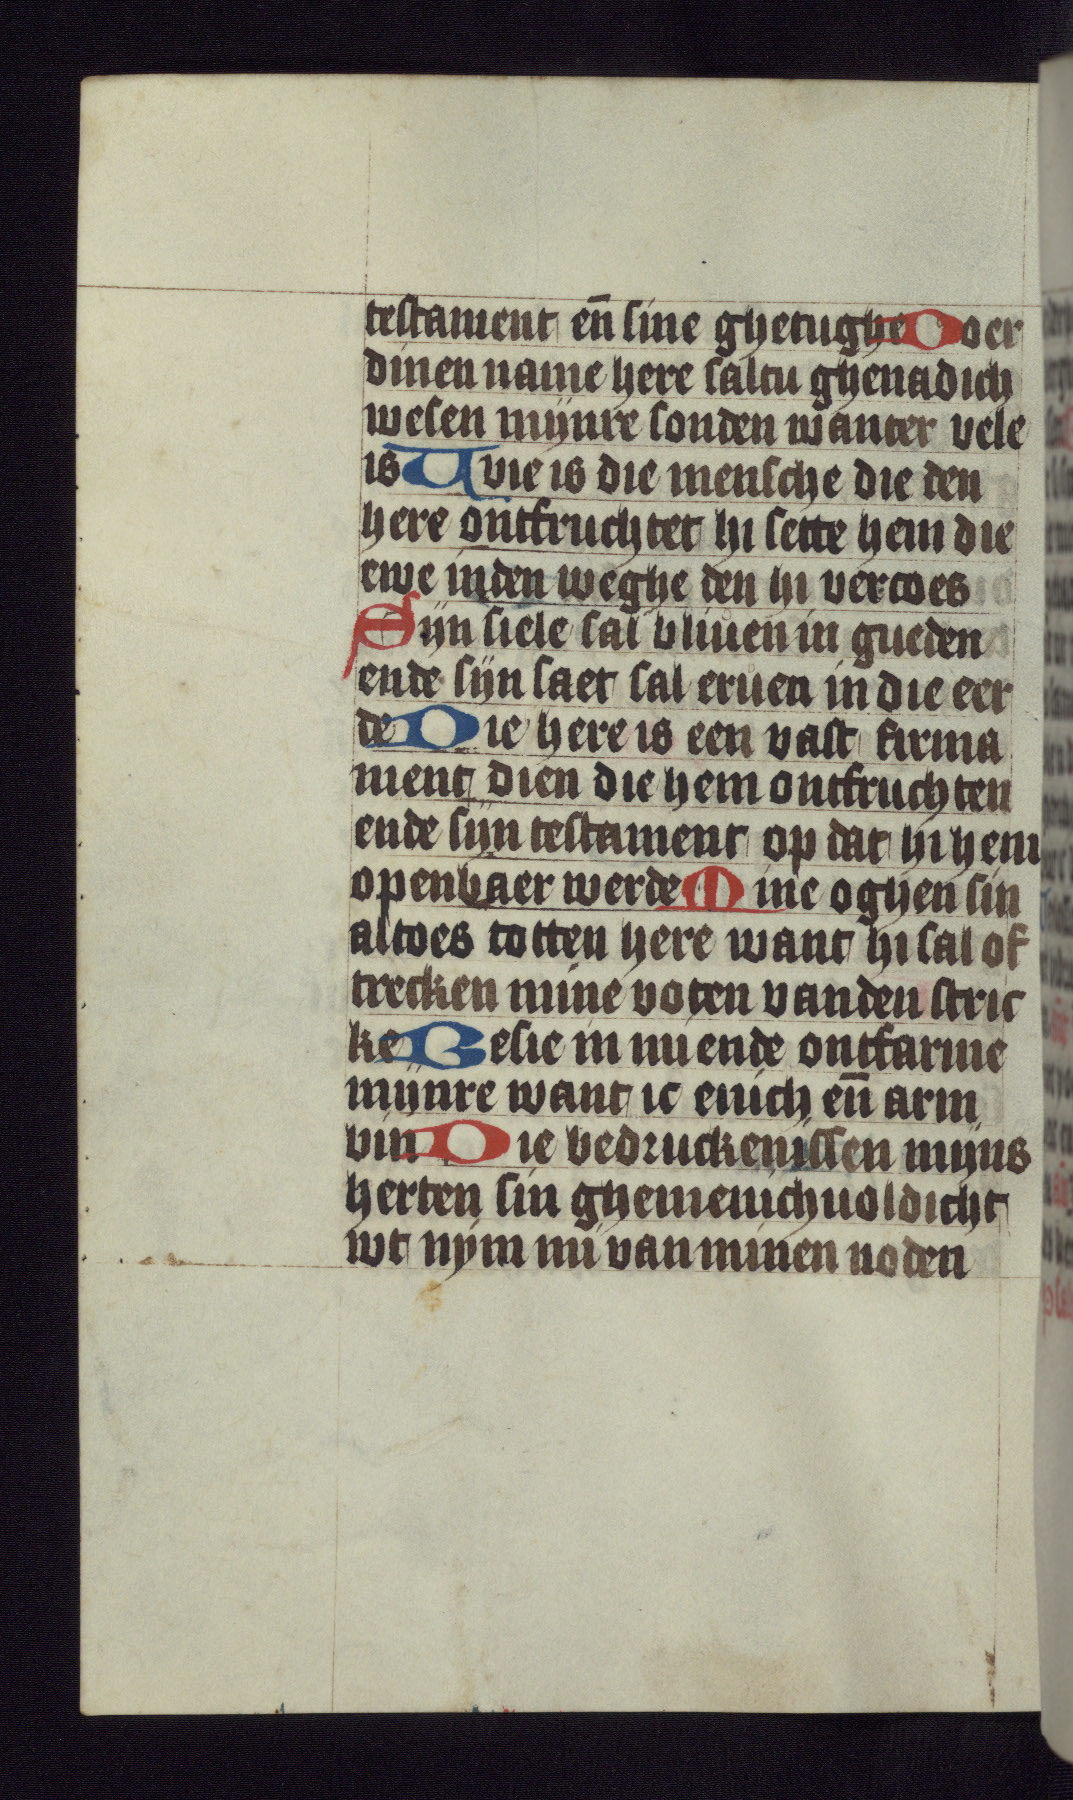 testament en̄ sine ghetughe Doer
dinen name here saltu ghenadich
wesen mijnre sonden wanter vele
is Wie is die mensche die den
here ontfruchtet hi sette hem die
ewe inden weghe den hi vercoes
Sijn siele sal bliuen in gueden
ende sijn saet sal eruen in die eer
de Die here is een vast firma
ment dien die hem ontfruchten
ende sijn testament op dat hi hem
openbaer werde Mine oghen sin
altoes totten here want hi sal of
trecken mine voten vanden stric
ke Besie mi nu ende ontfarme
mijnre want ic enich en̄ arm
bin Die bedruckenissen mijns
herten sin ghemenichuoldicht
wt nÿm mi van minen noden